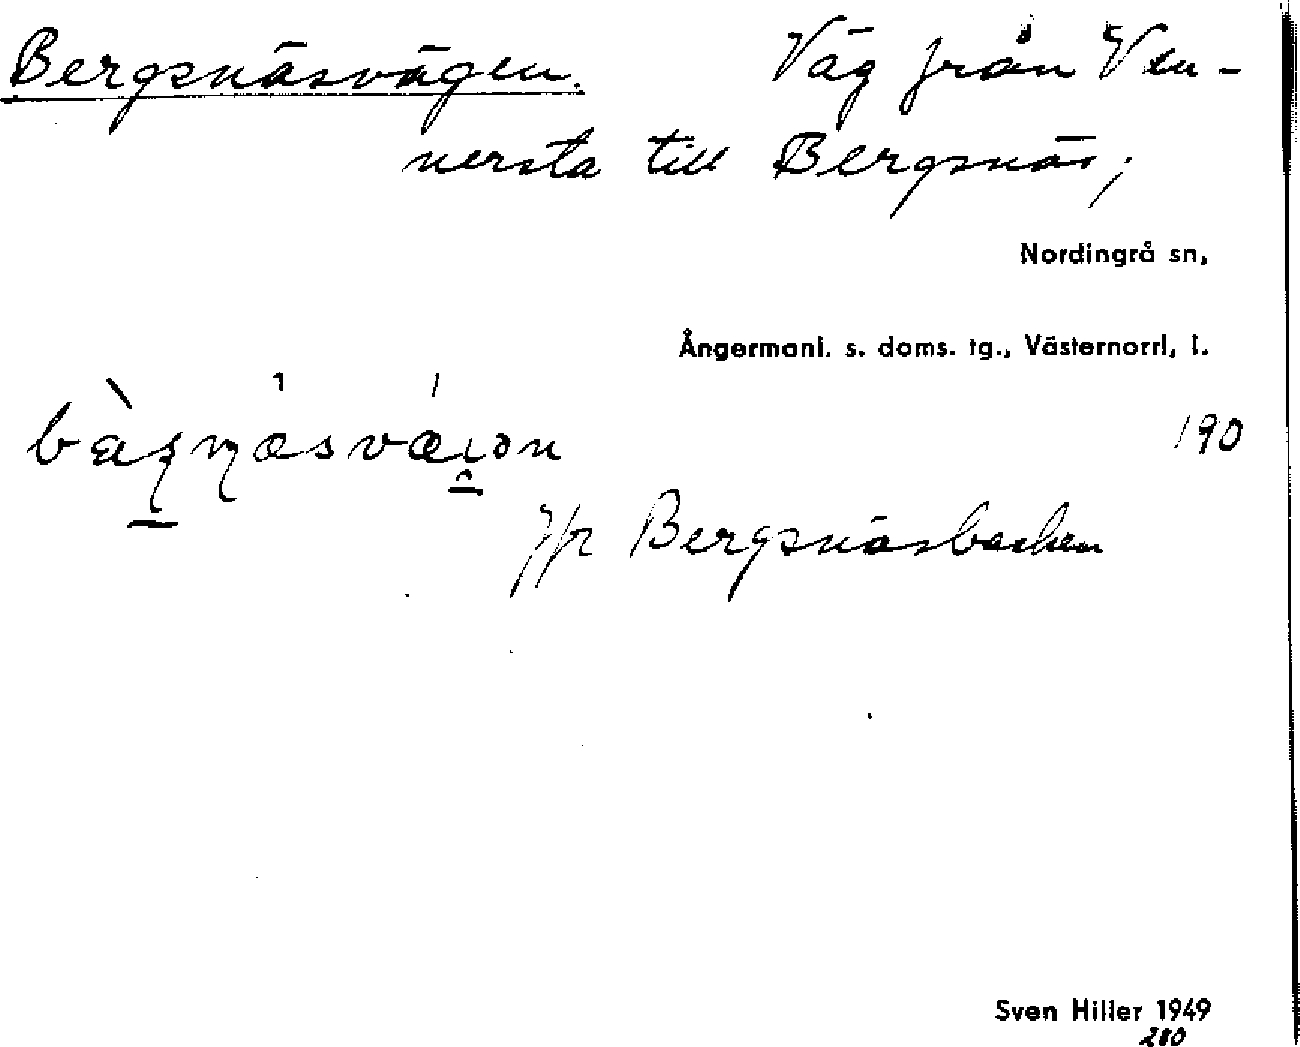 Bergsnäsvägen. Väg från Ven-
nersta till Bergsnäs;
Nordingrå sn,
Ångermanl. s. doms. tg., Västernorrl, l.
190
Jfr Bergsnäsbacken
Sven Hiller 1949
280